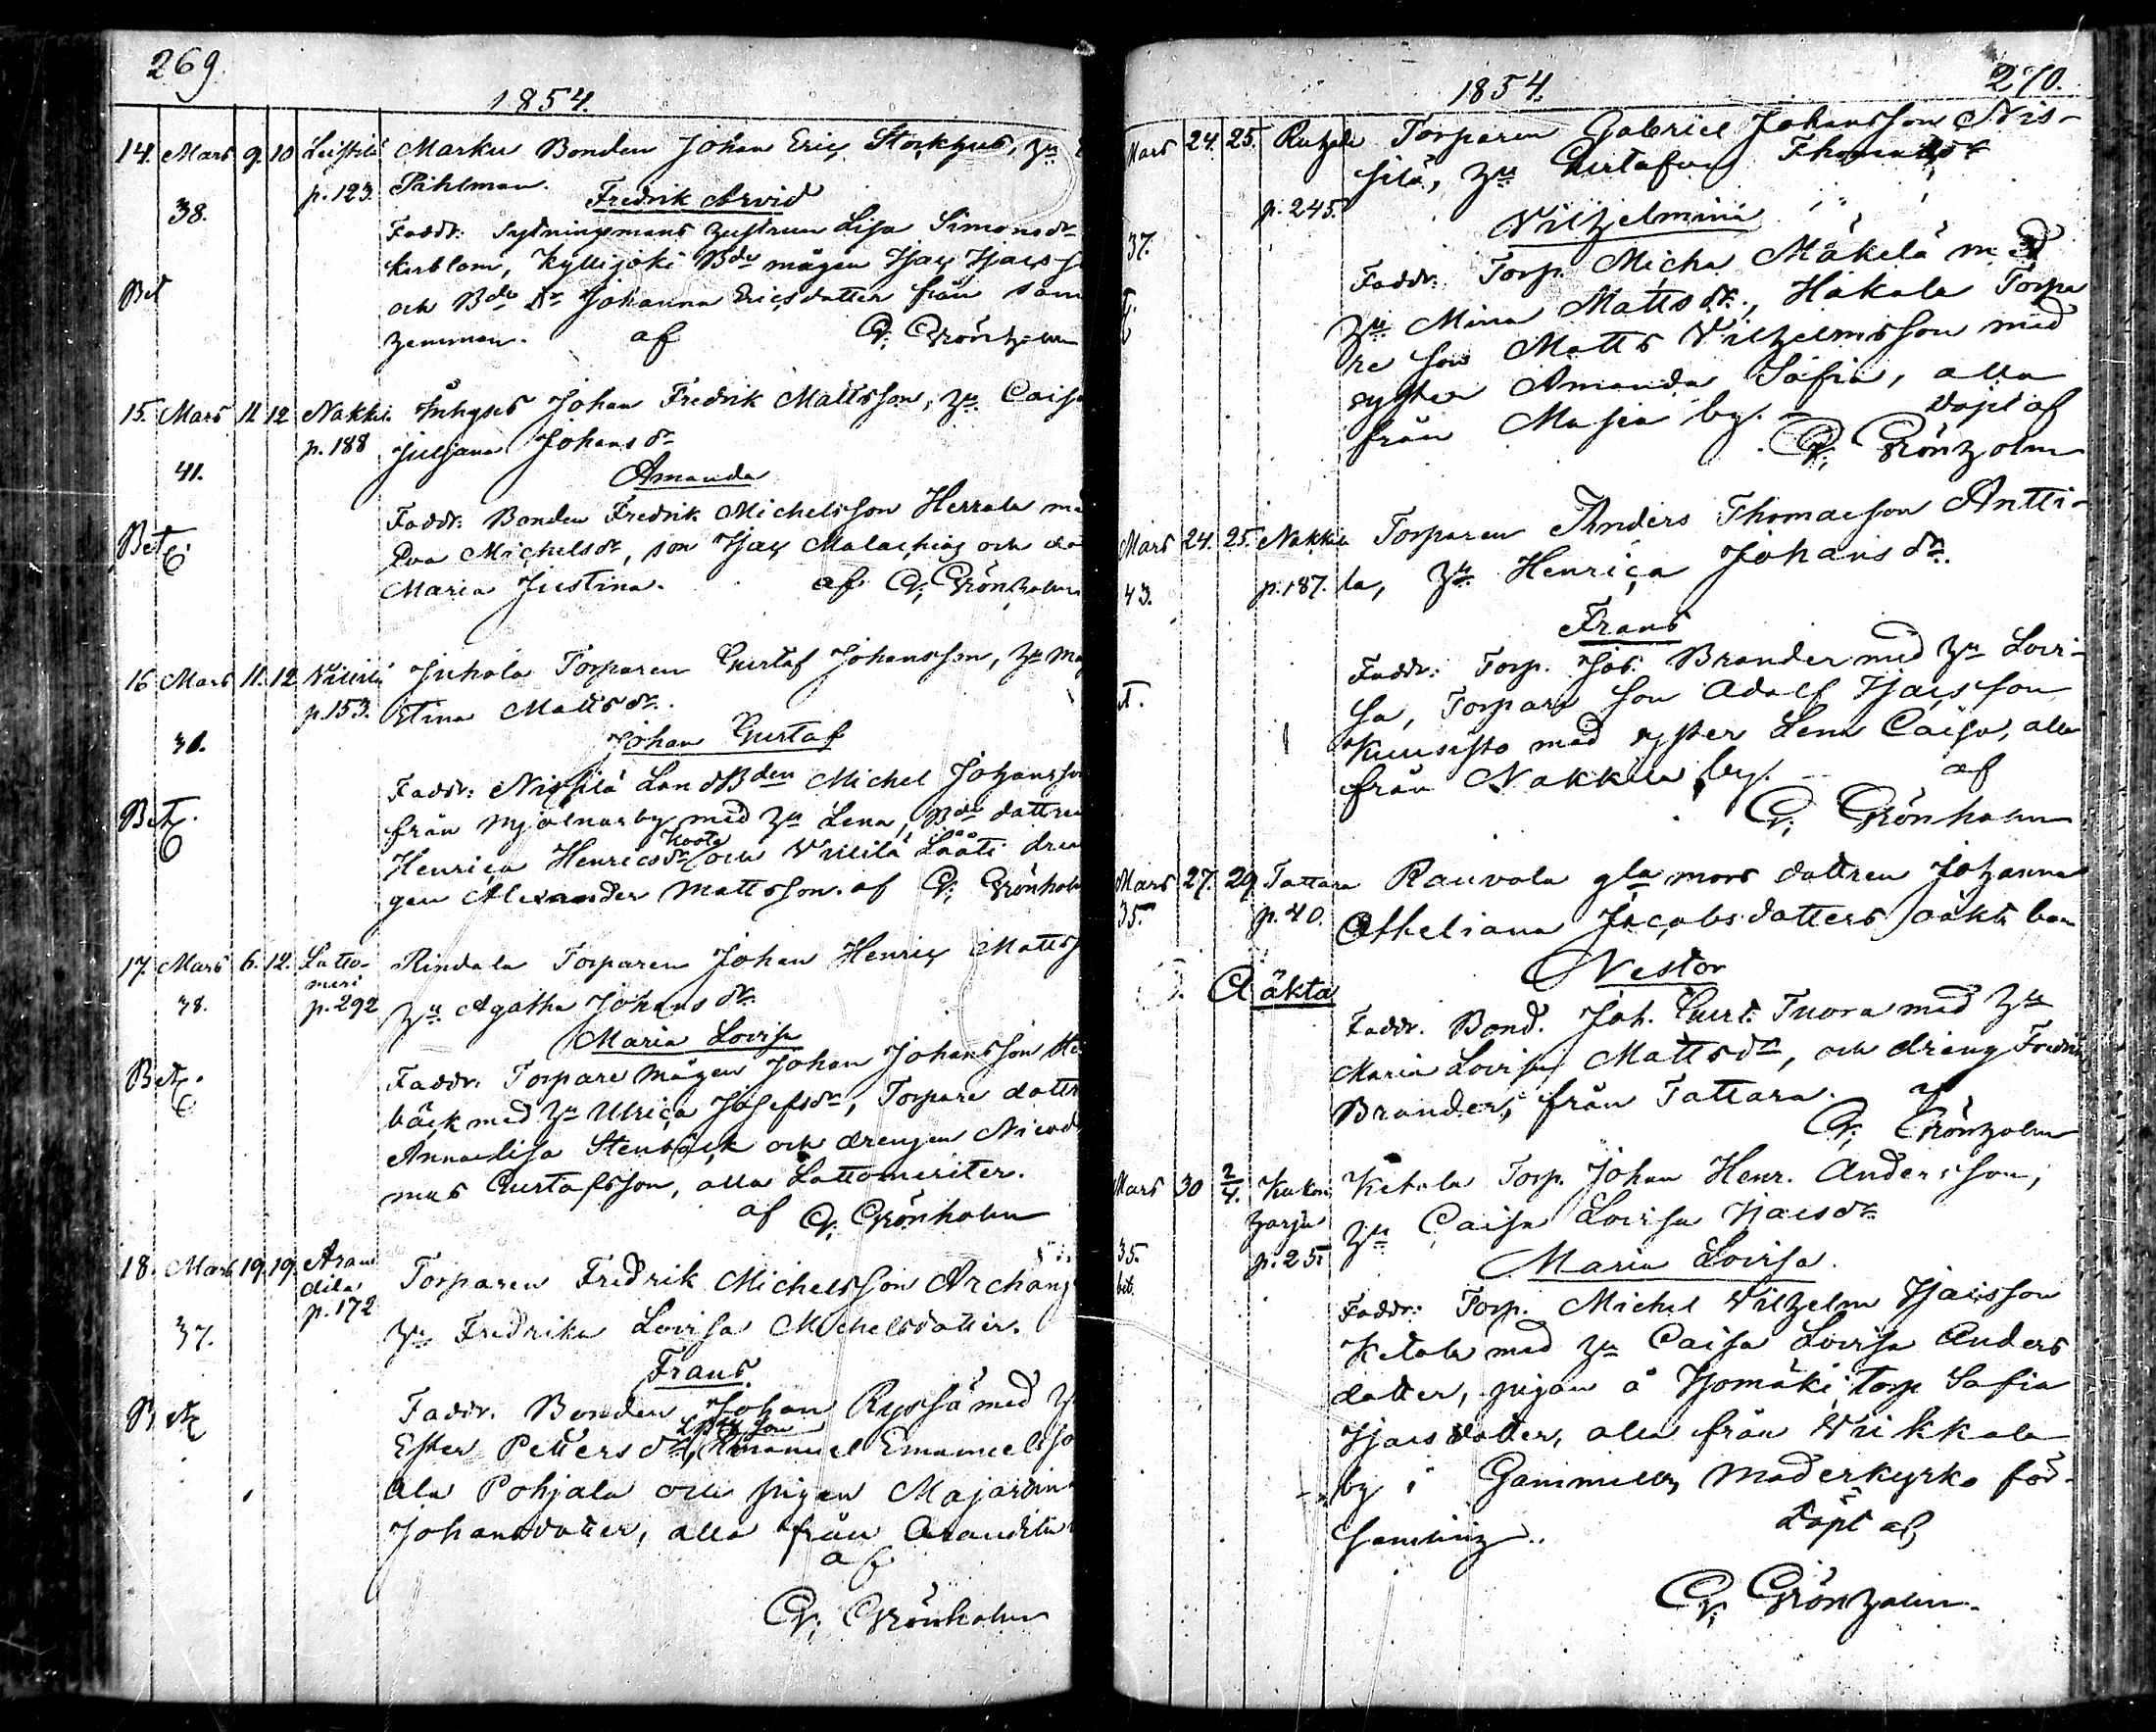 269.
1854.
14. Mars 9. 10 Leistilä Marku Bonden Johan Eric Storkhus, hu
p. 123. Påhlman.
38. Fredrik Arvid
Faddr: Sytningsmans hustrun Lisa Simonsdr
Bet Kyllijoki Bde mågen Isac Isacs
och Bde dr Johanna Ericsdotter från sam
hemman. af G. Grönholm
15. Mars 11 12 Nakkila Inhyses Johan Fredrik Mattsson, hu Caisa
p. 188 Juljana Johans dr
41. Amanda
Faddr: Bonden Fredrik Michelsson Herrala me
Bet Eva Michelsdr, son Isac Malachias och do
Maria Justina. af G. Grönholm
16 Mars 11. 12 Viiikk Juhola Torparen Gustaf Johansson, hu Maj
p. 153. Stina Mattsdr.
31. Johan Gustaf
Faddr: Nissilä LandBden Michel Johansson
Bet. från Mjölnarby med hu Lena, Bde dottren
Koota
Henrica Henricsdr och Viiilä Lååti dren
gen Alexander Mattsson. af G. Grönholm
17. Mars 6. 12. Latto- Rindala Torparen Johan Henric Mattss
meri
38. p. 292 hu Agatha Johans dr.
Maria Lovisa
Faddr. Torpare mågen Johan Johansson Ste
Bet. bäck med hu Ulrica Josefsdr, Torpare dottr
Annalisa Stenbäck och drengen Nicode
mus Gustafsson, alla Lattomeriter.
af G. Grönholm
18. Mars 19. 19. Aran
dila Torparen Fredrik Michelsson Archang
p. 172
37. hu Fredrika Lovisa Michelsdotter.
Frans
Faddr. Bonden Johan Ryssä med h
Bet son
Ester Pettersdr, Emanuel Emanuelsso
Ala Pohjala och pigan Majastina
Johansdotter, alla från Arandila
af
G. Grönholm
1854. 270.
Mars 24. 25. Ruhade Torparen Gabriel Johansson Nis-
silä, hu Gustafva Thomasdr
p. 245.
Vilhelmina
37. Faddr: Torp. Micha Mäkelä med
hu Mina Mattsdr., Hakala Torpa
re son Matts Vilhelmsson med
syster Amanda Safia, alla
från Masia by. Döpt af
G. Grönholm
Mars 24. 25. Nakkila Torparen Anders Thomasson Antti-
43. p. 187. la, hu Henrica Johans dr.
Frans
Faddr: Torp. Joh. Brander med hu Lovi-
sa, Torpare son Adolf Isacsson
Kuusisto med syster Lena Caisa, alla
från Nakkila by. af
G. Grönholm
Mars 27. 29. Tattara Rauvola gla mors dottren Johanna
35. p. 40. Otheliana Jacobsdotters oäkta barn
Nestor
Oäkta
Faddr. Bond. Joh. Gust. Tuora med hu
Maria Lovisa Mattsdr, och dreng Fredrik
Brander, från Tattara. af
G. Grönholm
Mars 30 2/4. Kukon Ketola Torp. Johan Henr. Andersson,
harja hu Caisa Lovisa Isacsdr
35. p. 25. Maria Lovisa.
bet.
Faddr: Torp. Michel Vilhelm Isacsson
Ketola med hu Caisa Lovisa Anders
dotter, pigan å Isomäki Torp Safia
Isacsdotter, alla från Viikkala
by i Gammelby Moderkyrko för-
samling. Döpt af
G. Grönholm.